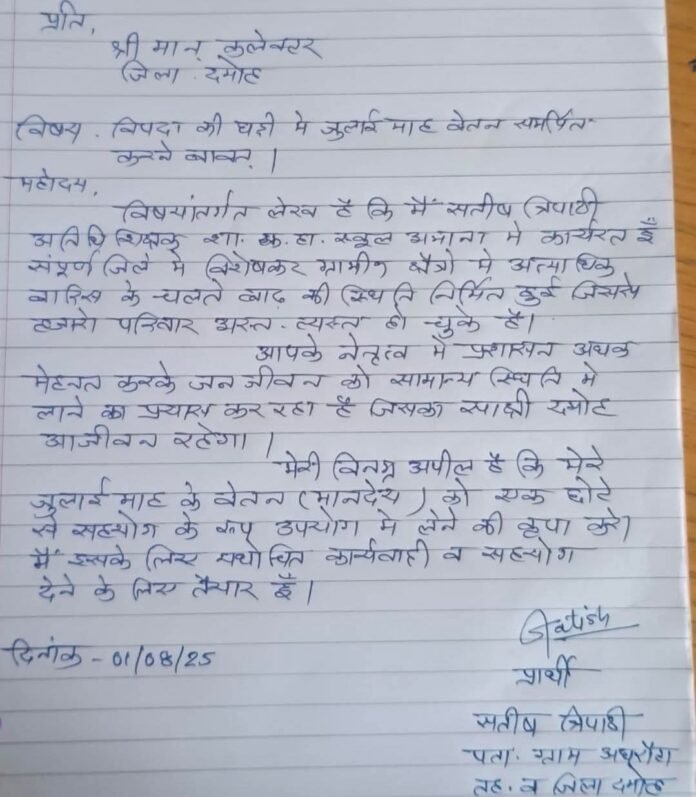 प्रति,
श्री मान् कलेक्टर
जिला दमोह
विषय. विपदा की घड़ी मे जुलाई माह वेतन समर्पित
करने बावत्।
महोदय,
विषयांतर्गत लेख है कि मैं सतीष त्रिपाठी
अतिथि शिक्षक शा. क. हा. स्कूल अभाना मे कार्यरत हूँ
संपूर्ण जिले मे विशेषकर ग्रामीण क्षैत्रो मे अत्याधिक
बारिस के चलते बाढ़ की स्थिति निर्मित हुई जिससे
हजारो परिवार अस्त-व्यस्त हो चुके है।
आपके नेतृत्व में प्रशासन अथक
मेहनत करके जन जीवन को सामान्य स्थिति मे
लाने का प्रयास कर रहा है जिसका साक्षी दमोह
आजीवन रहेगा।
मेरी विनम्र अपील है कि मेरे
जुलाई माह के वेतन (मानदेय) को एक छोटे
से सहयोग के रूप उपयोग मे लेने की कृपा करे।
मैं इसके लिए यथोचित कार्यवाही व सहयोग
देने के लिए तैयार हूँ।
Satish
दिनांक - 01/08/25
प्रार्थी
सतीष त्रिपाठी
पता. ग्राम
तह. व जिला दमोह